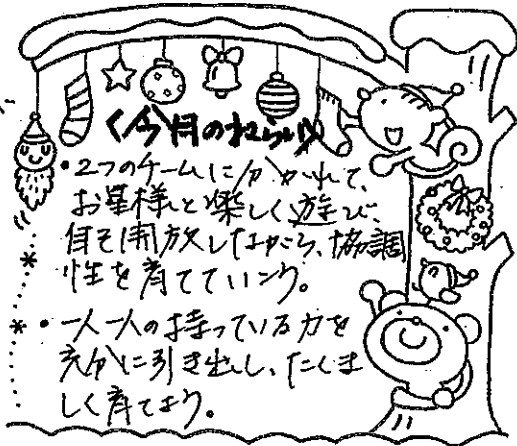 〈今月のねらい〉
・2つのチームに分かれて、
お星様と楽しく遊び、
自を開放しながら、協調
性を育てていこう。
・一人一人の持っている力を
充分に引き出し、たくま
しく育てよう。